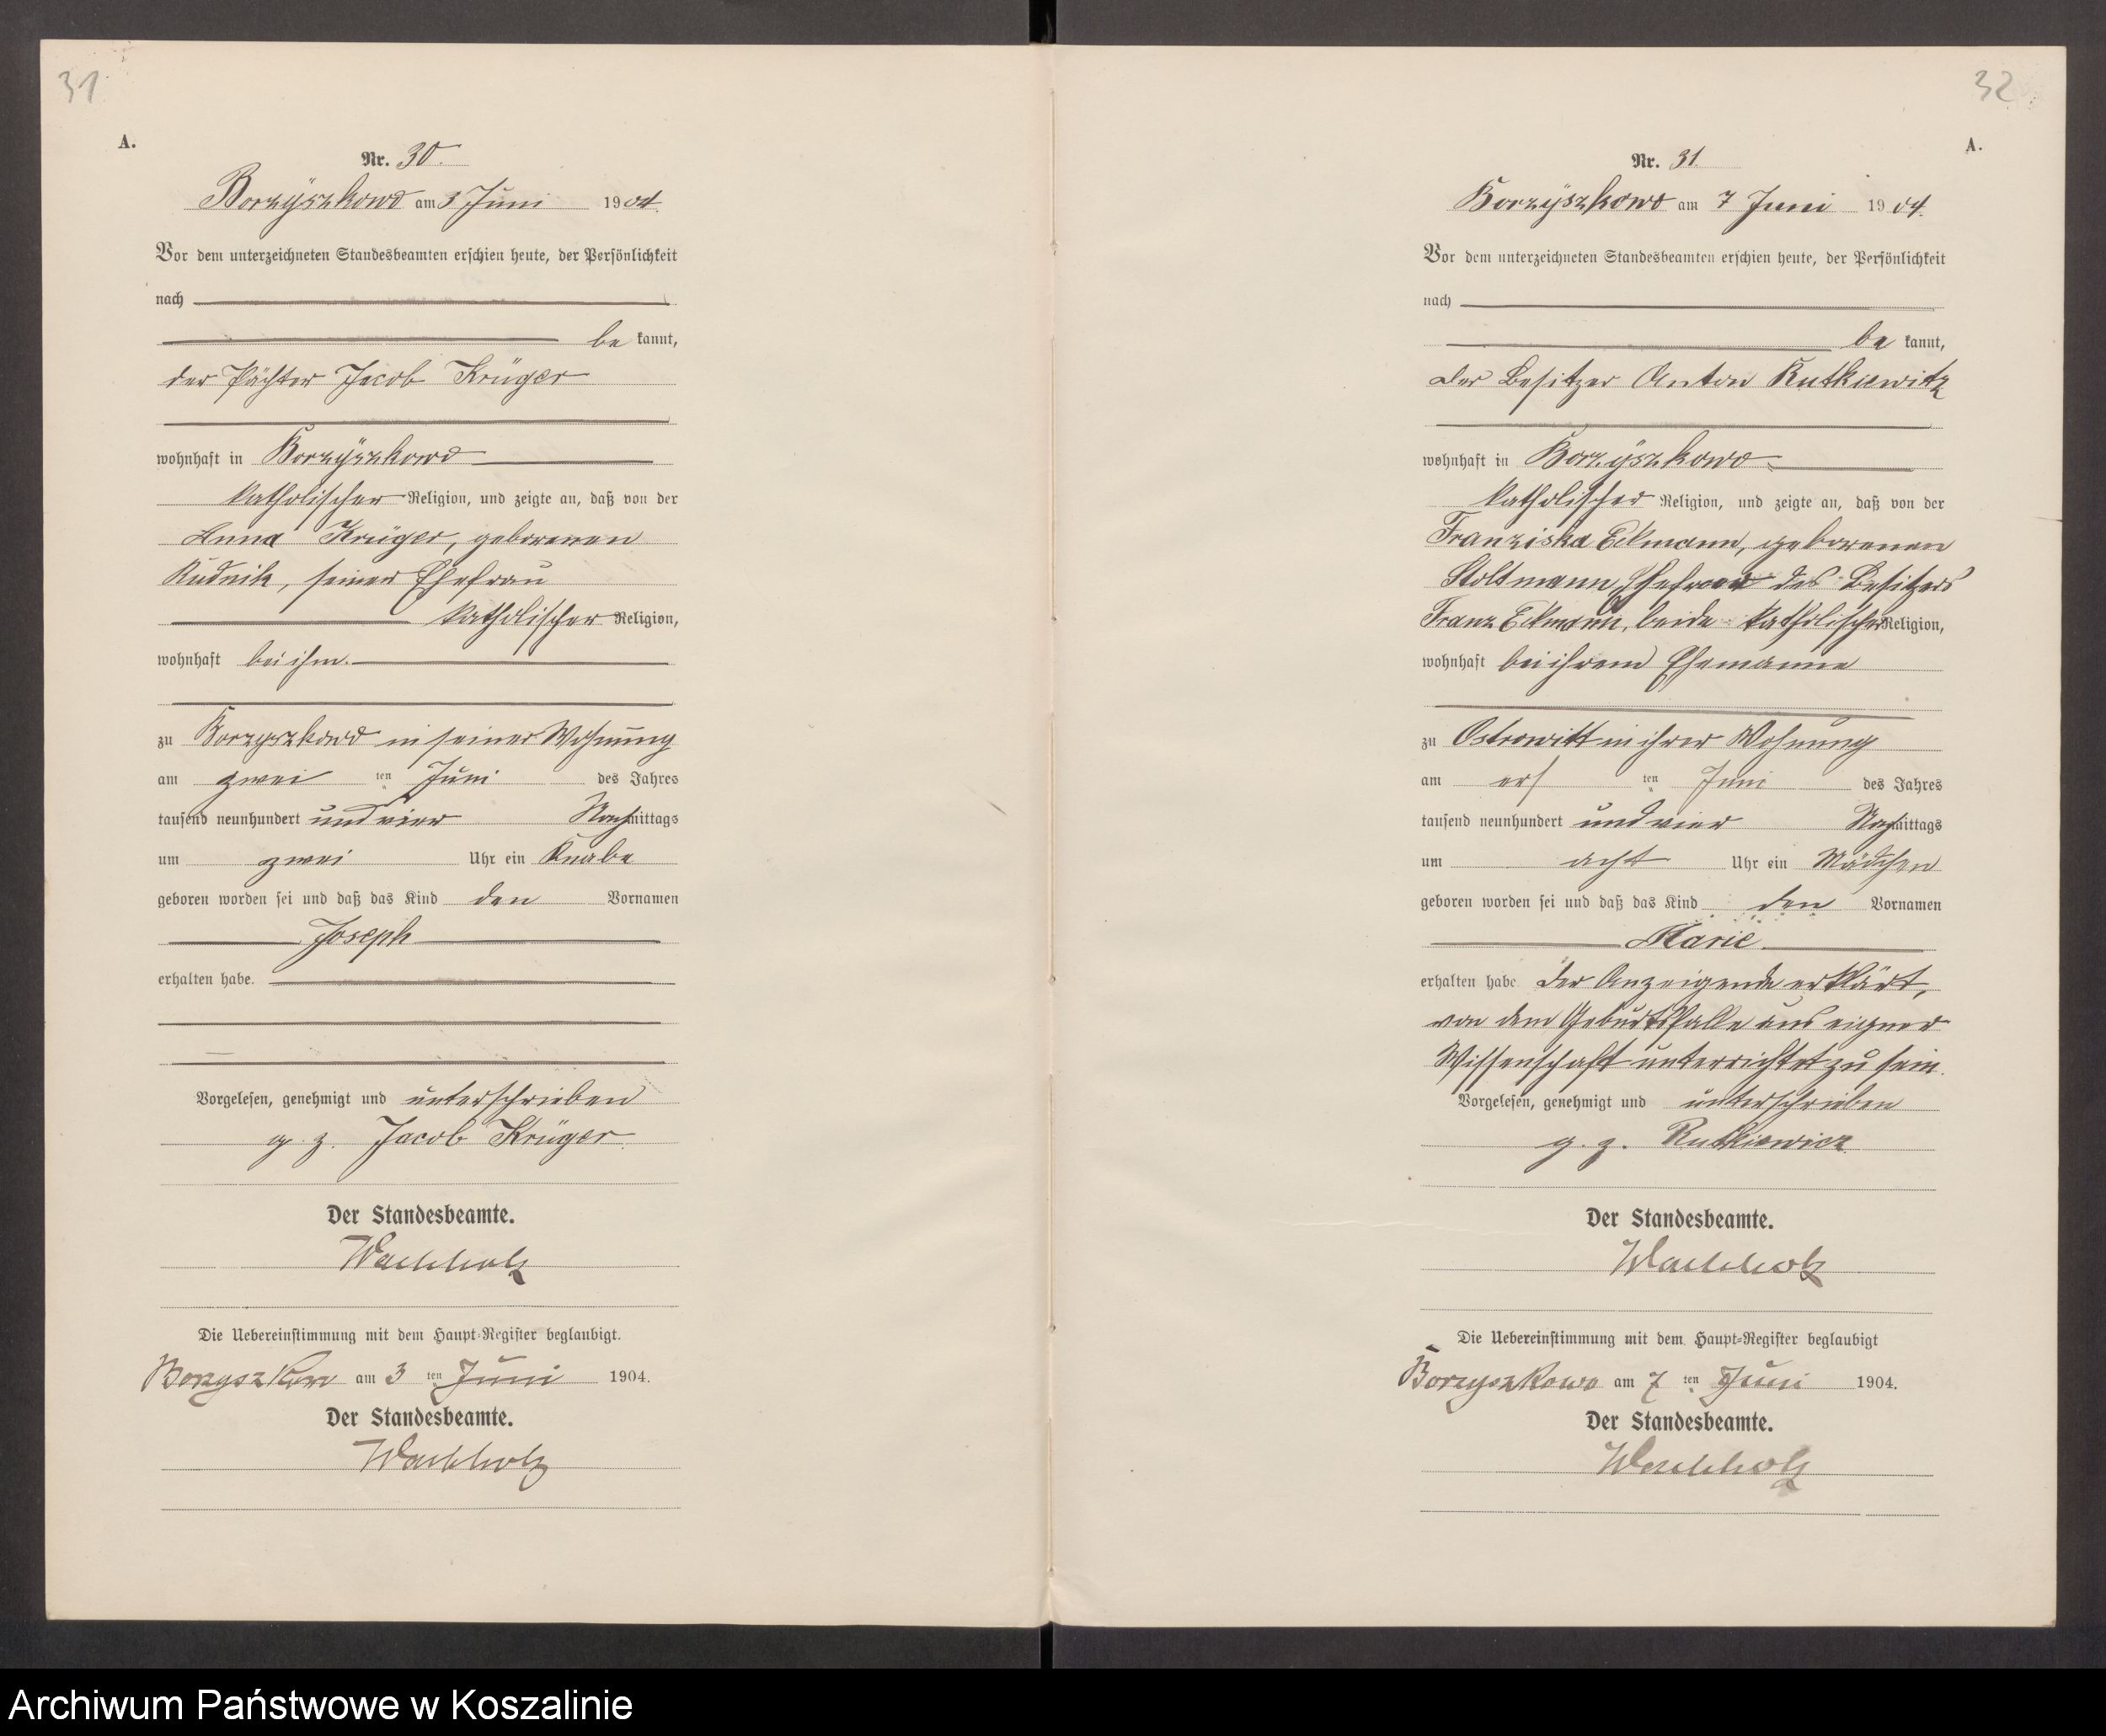 31
A.
Nr. 30.
Borzÿszkowo am 3 Juni 1904.
Vor dem unterzeichneten Standesbeamten erschien heute, der Persönlichkeit
nach
be kannt,
der Pächter Jacob Krüger
wohnhaft in Borzÿszkowo
katholischer Religion, und zeigte an, daß von der
Anna Krüger, geborenen
Rudnik, seiner Ehefrau
katholischer Religion,
wohnhaft bei ihm.
zu Borzyszkowo in seiner Wohnung
am zwei ten Juni des Jahres
tausend neunhundert und vier Nachmittags
um zwei Uhr ein Knabe
geboren worden sei und daß das Kind den Vornamen
Joseph
erhalten habe.
Vorgelesen, genehmigt und unterschrieben
g. z. Jacob Krüger
Der Standesbeamte.
Wachholz
Die Uebereinstimmung mit dem Haupt-Register beglaubigt.
Borzyszkowo am 3 ten Juni 1904.
Der Standesbeamte.
Wachholz
32
A.
Nr. 31.
Borzÿszkowo am 7 Juni 1904.
Vor dem unterzeichneten Standesbeamten erschien heute, der Persönlichkeit
nach
be kannt,
der Besitzer Anton Rutkiewitz
wohnhaft in Borzÿszkowo
katholischer Religion, und zeigte an, daß von der
Franziska Eckmann, geborenen
Stoltmann, Ehefrau des Besitzers
Franz Eckmann, beide katholischer Religion,
wohnhaft bei ihrem Ehemanne
zu Ostrowitt in ihrer Wohnung
am ers ten Juni des Jahres
tausend neunhundert und vier Nachmittags
um acht Uhr ein Mädchen
geboren worden sei und daß das Kind den Vornamen
Marie
erhalten habe. Der Anzeigende erklärt,
von dem Geburtsfalle aus eigner
Wissenschaft unterrichtet zu sein.
Vorgelesen, genehmigt und unterschrieben
g. z. Rutkiewicz
Der Standesbeamte.
Wachholz
Die Uebereinstimmung mit dem Haupt-Register beglaubigt
Borzyszkowo am 7 ten Juni 1904.
Der Standesbeamte.
Wachholz
Archiwum Państwowe w Koszalinie